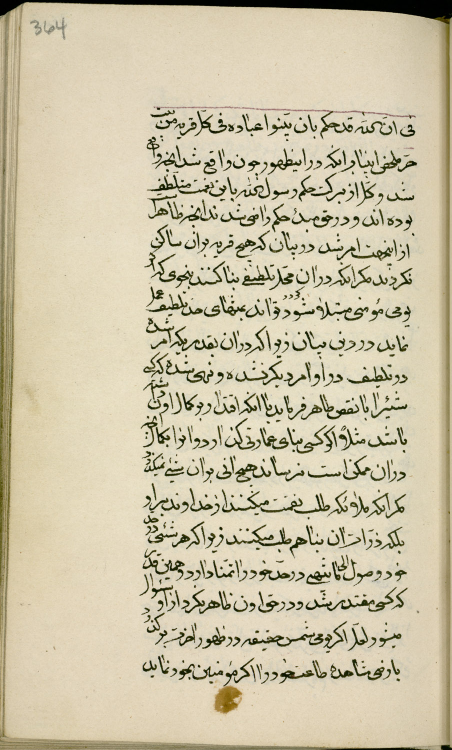 364
فی ان الله قد حکم بان یبنوا عباده فی کل قریه من بیت
حر ملخص این باب آنکه در این ظهور چون واقع شد آنچه واقع
شد و کل از برکت حکم رسول الله باین نعمت متلطف
بوده‌اند و در حق مبدء حکم راضی شدند آنچه ظاهر
از اینجهت امر شد در بیان که هیچ قریه بر آن ساکن
نکردند مگر آنکه در آن محل تلطیفی بنا کنند بنحوی که اگر
یومی مؤمنی مبتلا شود تواند بمنتهای حد تلطیف عمل
نماید در دین بیان زیرا که در آن بقدریکه امر شده
در تلطیف در او امر دیگر نشده و نهی شده که کسی
شیئ را با نقص ظاهر فرماید با آنکه اقتدار بر کمال او داشته
باشد مثلا اگر کسی بنای عمارتی گذارد و آنرا بکمال آنچه
در آن ممکن است نرساند هیچ آنی بر آن شیئ نمیگذرد
مگر آنکه ملائکه طلب نقمت میکنند از خداوند بر او
بلکه ذرات آن بنا هم طلب میکنند زیرا که هر شیئ در حد
خود وصول الی ما ینتهی در حد خود را تمنا دارد و همین قدر
که کسی مقتدر شد و در حق اون ظاهر نکرد از او سئوال
میشود لعل اگر یومی شمس حقیقه در ظهور اخرت بر کند
یا رضی مشاهده طاعت خود را اگر مؤمنین بخود نماید